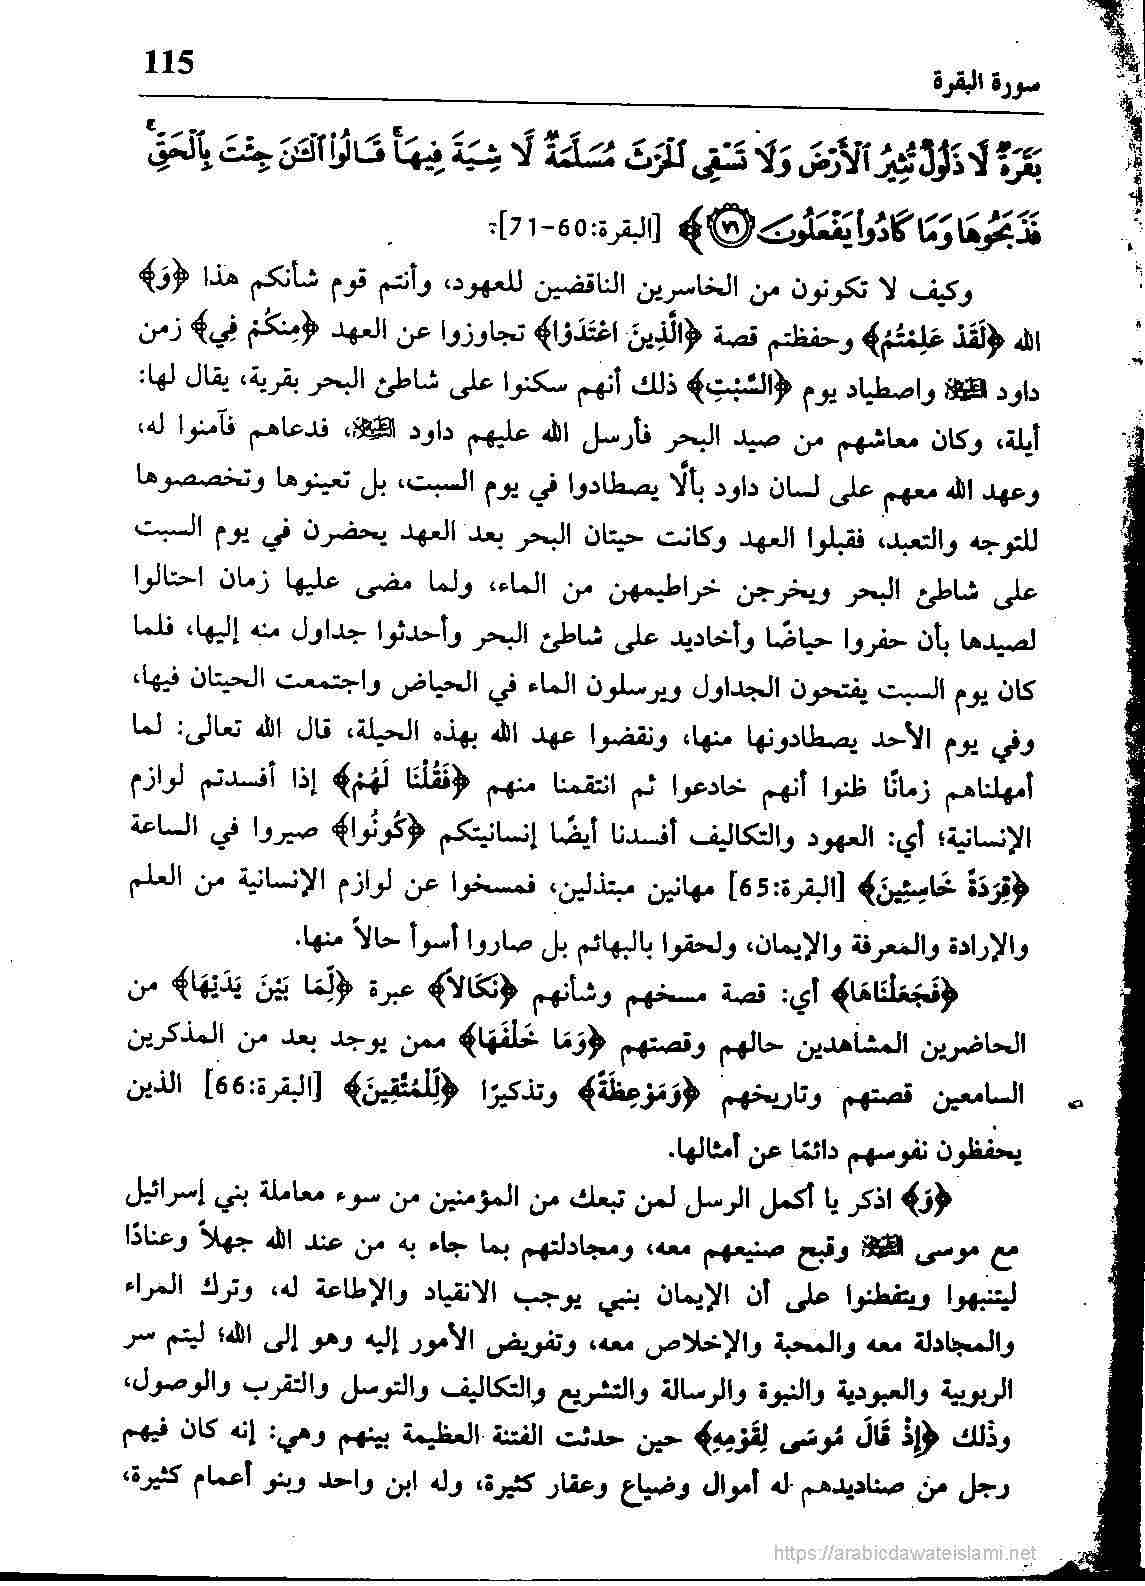 115
سورة البقرة
بَقَرَةٌ لَّا ذَلُولٌ تُثِيرُ ٱلْأَرْضَ وَلَا تَسْقِى ٱلْحَرْثَ مُسَلَّمَةٌ لَّا شِيَةَ فِيهَا ۚ قَالُوا۟ ٱلْـَٰٔنَ جِئْتَ بِٱلْحَقِّ ۚ
فَذَبَحُوهَا وَمَا كَادُوا۟ يَفْعَلُونَ ٧١﴾ [البقرة:60-71].
وكيف لا تكونون من الخاسرين الناقضين للعهود، وأنتم قوم شأنكم هذا ﴿وَ﴾
الله ﴿لَقَدْ عَلِمْتُمُ﴾ وحفظتم قصة ﴿الَّذِينَ اعْتَدَوْا﴾ تجاوزوا عن العهد ﴿مِنكُمْ فِي﴾ زمن
داود عليه السلام واصطياد يوم ﴿السَّبْتِ﴾ ذلك أنهم سكنوا على شاطئ البحر بقرية، يقال لها:
أيلة، وكان معاشهم من صيد البحر فأرسل الله عليهم داود عليه السلام، فدعاهم فآمنوا له،
وعهد الله معهم على لسان داود بألَّا يصطادوا في يوم السبت، بل تعينوها وتخصصوها
للتوجه والتعبد، فقبلوا العهد وكانت حيتان البحر بعد العهد يحضرن في يوم السبت
على شاطئ البحر ويخرجن خراطيمهن من الماء، ولما مضى عليها زمان احتالوا
لصيدها بأن حفروا حياضًا وأخاديد على شاطئ البحر وأحدثوا جداول منه إليها، فلما
كان يوم السبت يفتحون الجداول ويرسلون الماء في الحياض واجتمعت الحيتان فيها،
وفي يوم الأحد يصطادونها منها، ونقضوا عهد الله بهذه الحيلة، قال الله تعالى: لما
أمهلناهم زمانًا ظنوا أنهم خادعوا ثم انتقمنا منهم ﴿فَقُلْنَا لَهُمْ﴾ إذا أفسدتم لوازم
الإنسانية؛ أي: العهود والتكاليف أفسدنا أيضًا إنسانيتكم ﴿كُونُوا﴾ صيروا في الساعة
﴿قِرَدَةً خَاسِئِينَ﴾ [البقرة:65] مهانين مبتذلين، فمسخوا عن لوازم الإنسانية من العلم
والإرادة والمعرفة والإيمان، ولحقوا بالبهائم بل صاروا أسوأ حالاً منها.
﴿فَجَعَلْنَاهَا﴾ أي: قصة مسخهم وشأنهم ﴿نَكَالاً﴾ عبرة ﴿لِّمَا بَيْنَ يَدَيْهَا﴾ من
الحاضرين المشاهدين حالهم وقصتهم ﴿وَمَا خَلْفَهَا﴾ ممن يوجد بعد من المذكرين
السامعين قصتهم وتاريخهم ﴿وَمَوْعِظَةً﴾ وتذكيرًا ﴿لِّلْمُتَّقِينَ﴾ [البقرة:66] الذين
يحفظون نفوسهم دائمًا عن أمثالها.
﴿وَ﴾ اذكر يا أكمل الرسل لمن تبعك من المؤمنين من سوء معاملة بني إسرائيل
مع موسى عليه السلام وقبح صنيعهم معه، ومجادلتهم بما جاء به من عند الله جهلاً وعنادًا
ليتنبهوا ويتفطنوا على أن الإيمان بنبي يوجب الانقياد والإطاعة له، وترك المراء
والمجادلة معه والمحبة والإخلاص معه، وتفويض الأمور إليه وهو إلى الله؛ ليتم سر
الربوبية والعبودية والنبوة والرسالة والتشريع والتكاليف والتوسل والتقرب والوصول،
وذلك ﴿إِذْ قَالَ مُوسَى لِقَوْمِهِ﴾ حين حدثت الفتنة العظيمة بينهم وهي: إنه كان فيهم
رجل من صناديدهم له أموال وضياع وعقار كثيرة، وله ابن واحد وبنو أعمام كثيرة،
https://arabicdawateislami.net